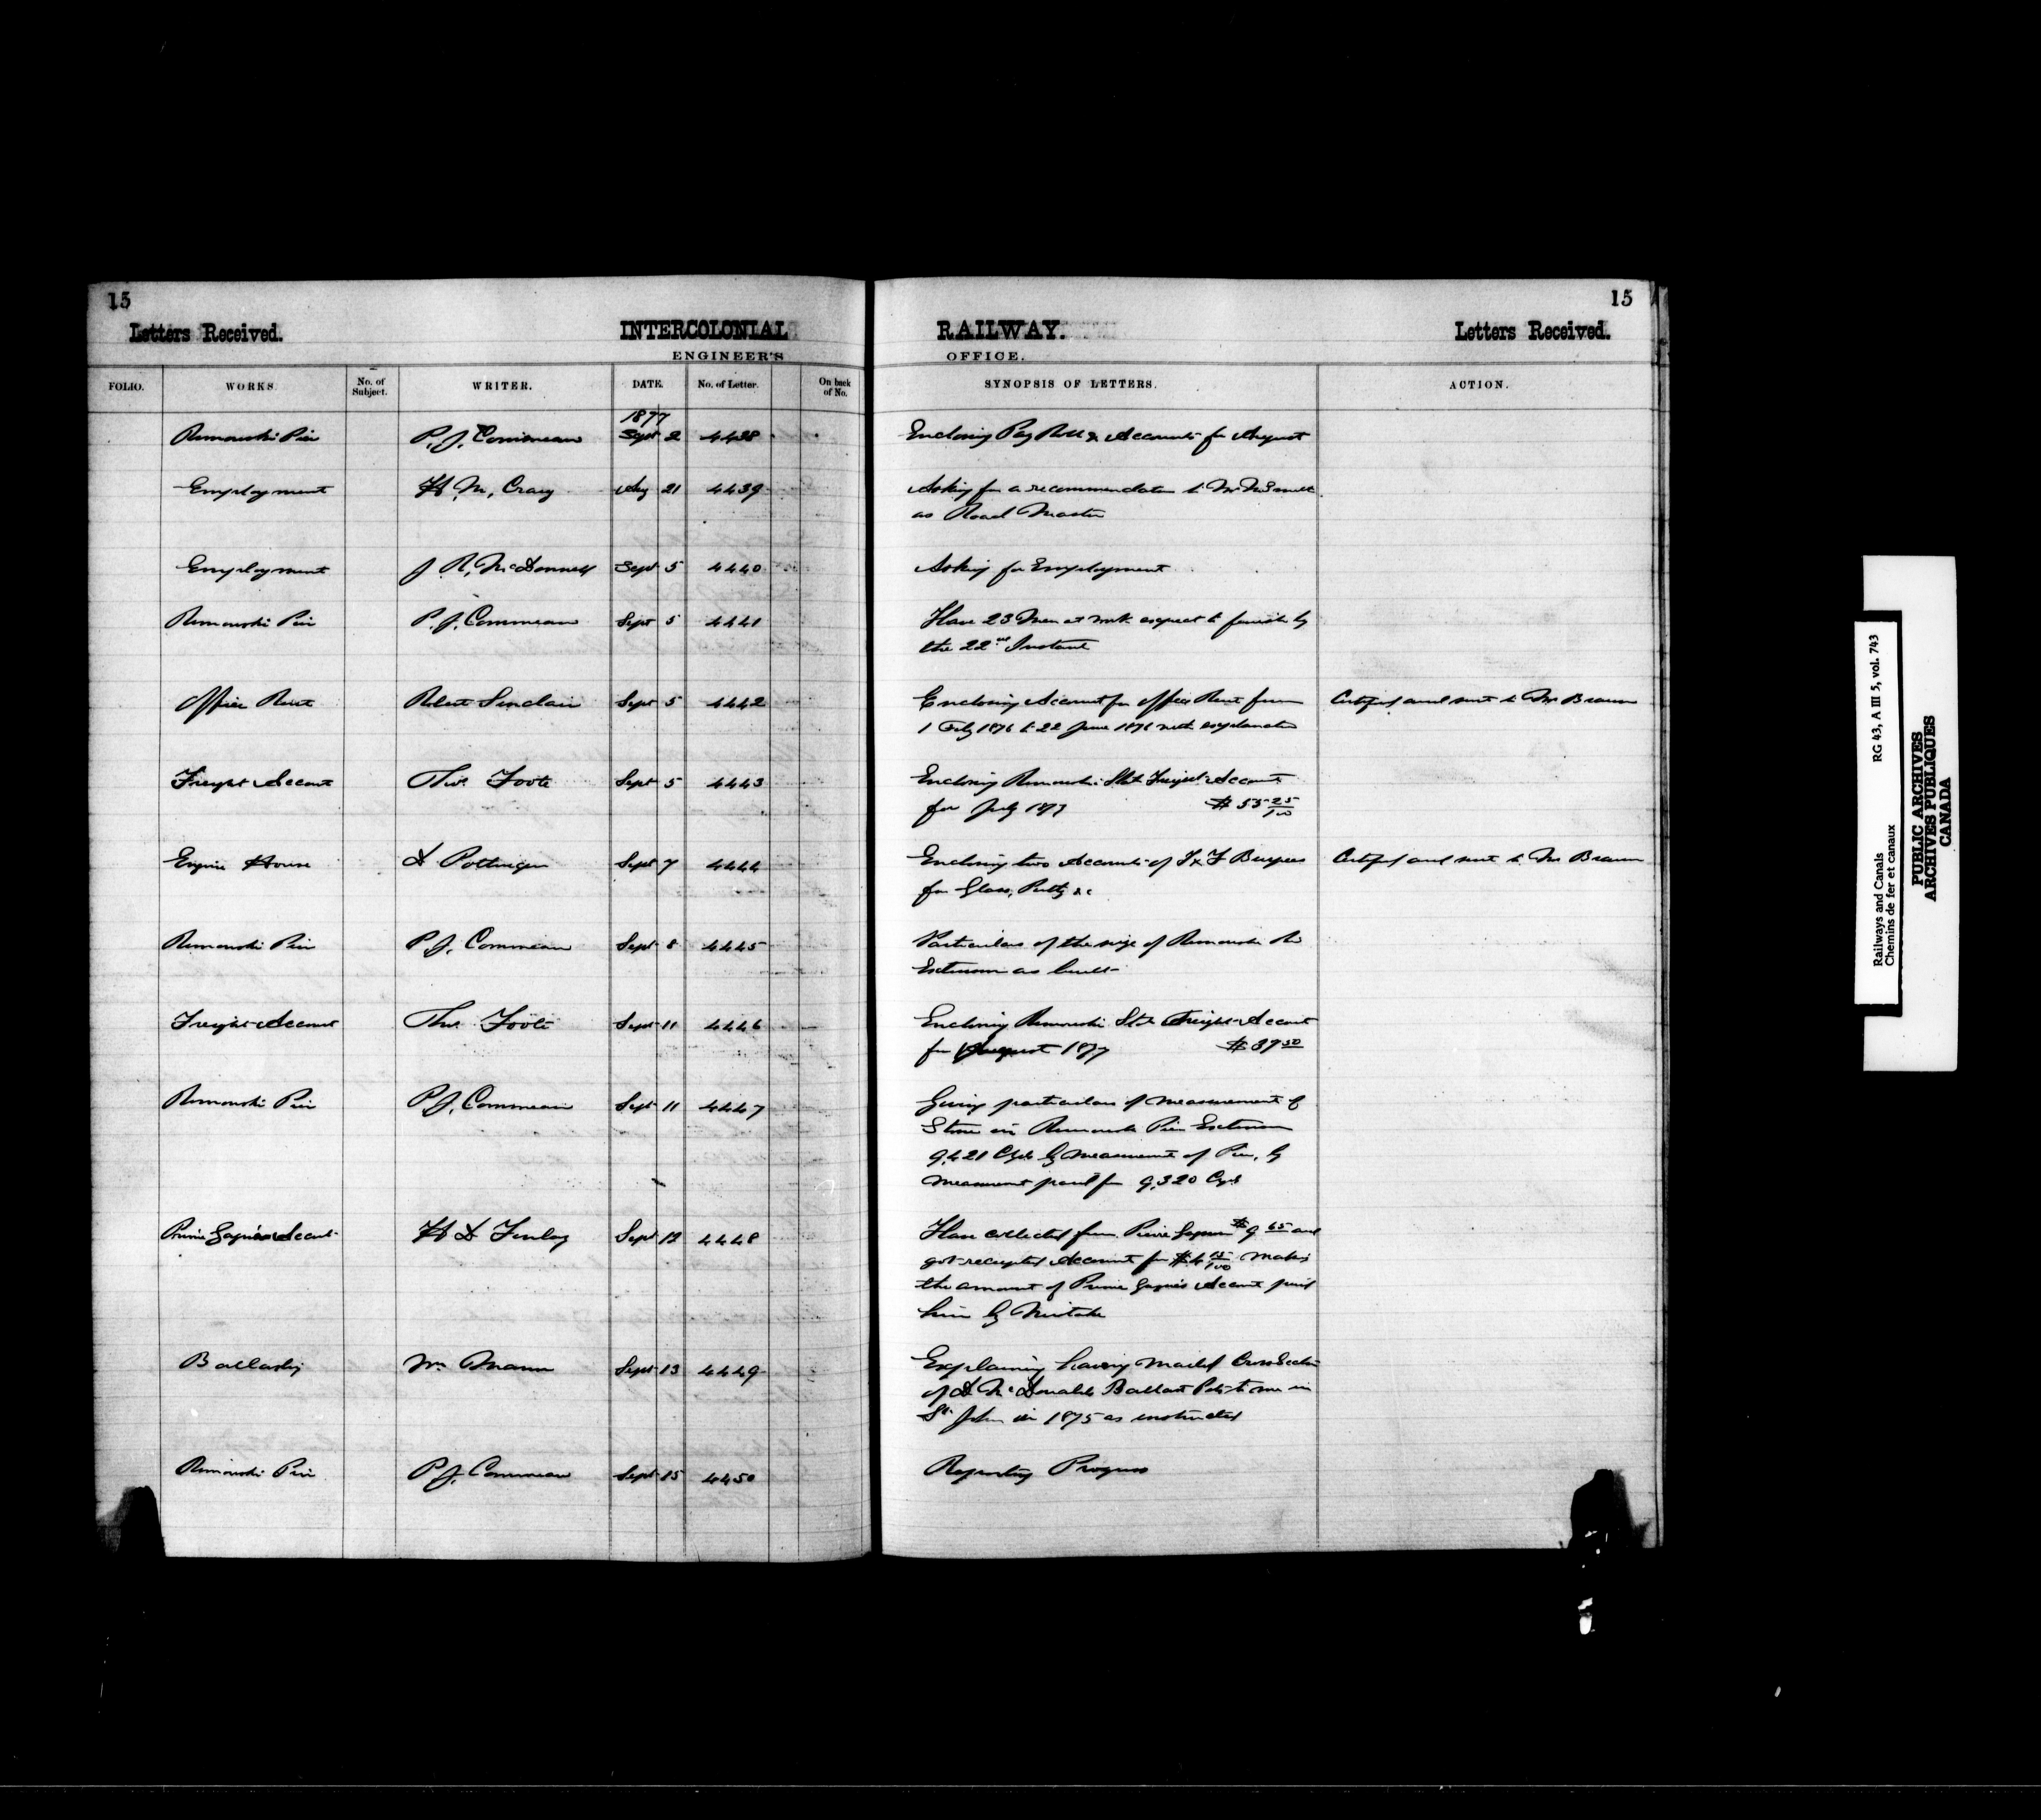 15
15
Letters Received.
INTERCOLONIAL RAILWAY.
Letters Received.
ENGINEER'S OFFICE.
FOLIO. WORKS. No. of Subject. WRITER. DATE. No. of Letter. On back of No. SYNOPSIS OF LETTERS. ACTION.
1877
Rimouski Pier P. J. Commeau Sept 2 4438 Enclosing Pay Roll & Accounts for August
Employment H. M. Craig Aug 21 4439 Asking for a recommendation to Mr
as Road Master
Employment J R. McDonnell Sept 5 4440 Asking for Employment
Rimouski Pier P. J. Commeau Sept 5 4441 Have 23 Men at work expect to finish by
the 22nd Instant
Office Rent Robert Sinclair Sept 5 4442 Enclosing Account for Office Rent from Certified and sent to Mr Braun
1 Feby 1876 to 22 June 1876 with explanation
Freight Account Thos. Foote Sept 5 4443 Enclosing Rimouski Stat Freight Account
for July 1877 $55 25/100
Engine House D Pottinger Sept 7 4444 Enclosing two Accounts of I & F Burpee Certified and sent to Mr Braun
for Glass, Putty &c
Rimouski Pier P J. Commeau Sept 8 4445 Particulars of the size of Rimouski Pier
Extension as built
Freight Account Thos. Foote Sept 11 4446 Enclosing Rimouski Stat Freight Account
for August 1877 $39 50
Rimouski Pier P J. Commeau Sept 11 4447 Giving particulars of measurement of
Stone in Rimouski Pier Extension
9,421 Cyds by measurement of Pier, by
Measurement paid for 9,320 Cyds
Pierre Gagnés Account H D Finlay Sept 12 4448 Have collected from Pierre $9 65 and
got receipted Account for making
the amount of Pierre Gagnés Account paid
him by Mistake
Ballasting Wm Mann Sept 13 4449 Explaining having mailed Cross Section
of D McDonalds Ballast Pits to me in
St John in 1875 as instructed
Rimouski Pier P J. Commeau Sept 15 4450 Reporting Progress
Railways and Canals RG 43, A III 5, vol. 743
Chemins de fer et canaux
PUBLIC ARCHIVES
ARCHIVES PUBLIQUES
CANADA